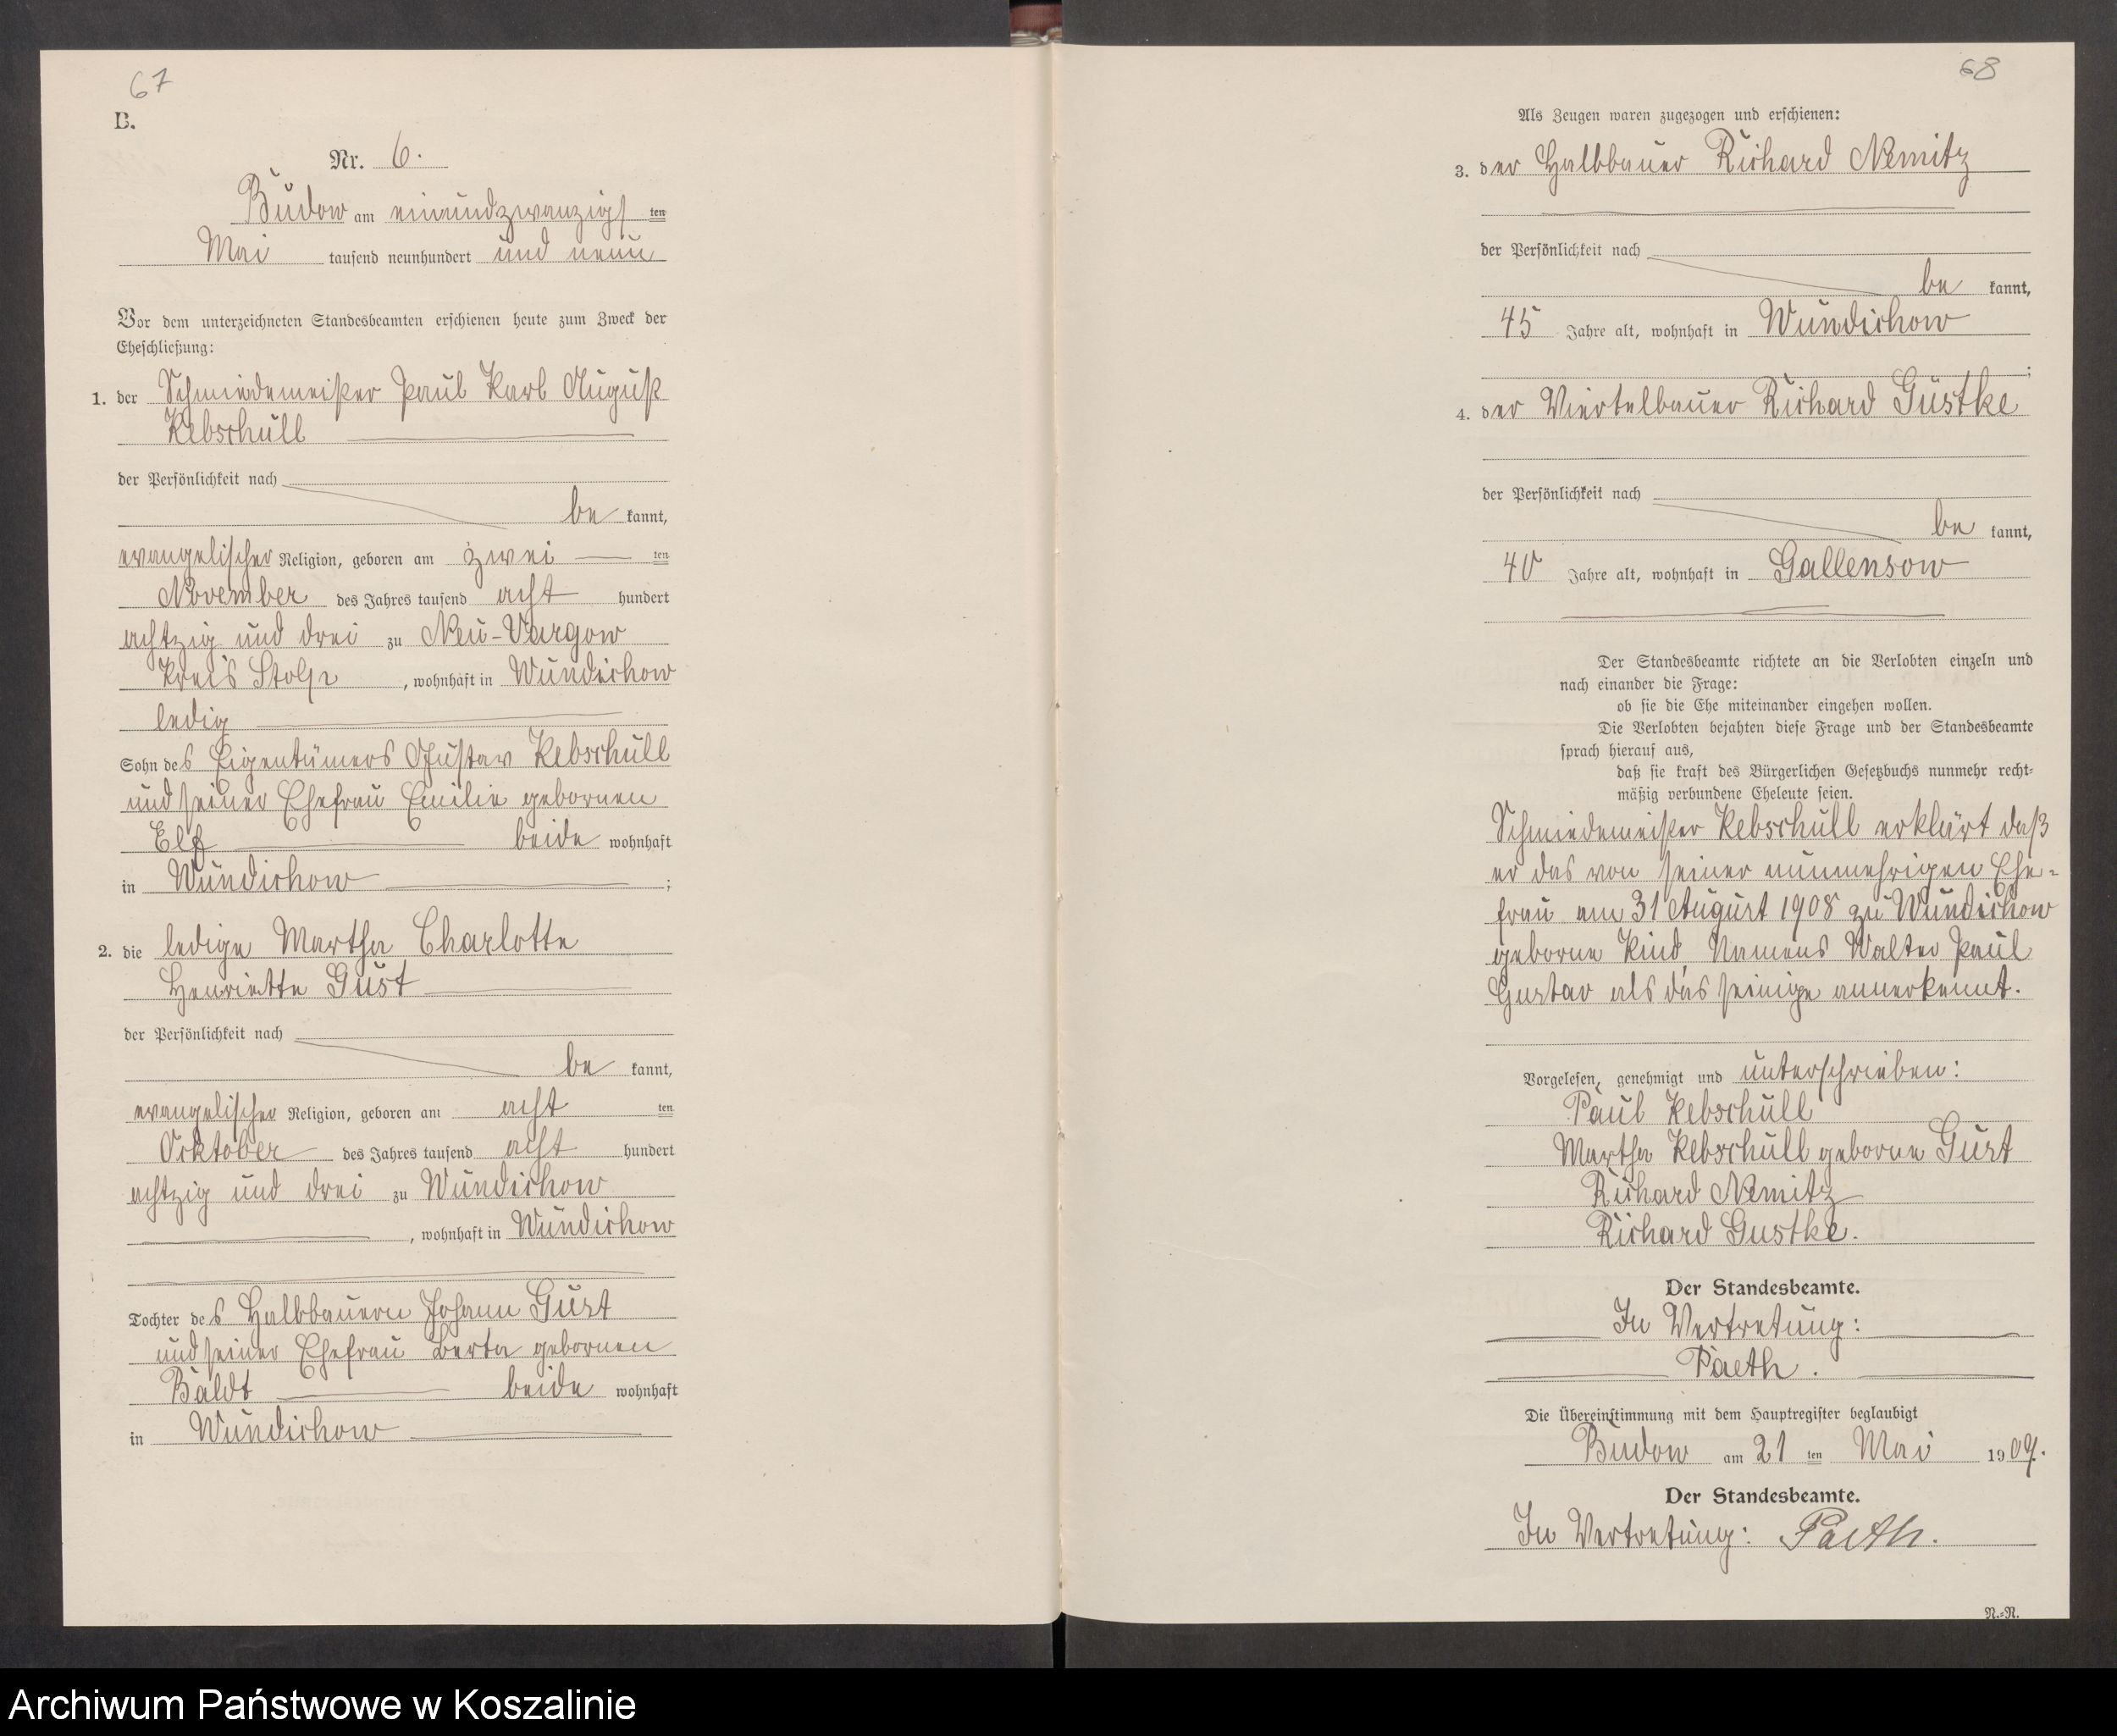 67
B.
Nr. 6.
Budow am einundzwanzigsten
Mai tausend neunhundert und neun
Vor dem unterzeichneten Standesbeamten erschienen heute zum Zweck der
Eheschließung:
1. der Schmiedemeister Paul Karl August
Kebschull
der Persönlichkeit nach
be kannt,
evangelischer Religion, geboren am zwei ten
November des Jahres tausend acht hundert
achtzig und drei zu Neu-Vargow
Kreis Stolp, wohnhaft in Wundichow
ledig
Sohn des Eigentümers Gustav Kebschull
und seiner Ehefrau Emilie gebornen
Elf beide wohnhaft
in Wundichow;
2. die ledige Martha Charlotte
Henriette Gust
der Persönlichkeit nach
be kannt,
evangelischer Religion, geboren am acht ten
Ocktober des Jahres tausend acht hundert
achtzig und drei zu Wundichow
, wohnhaft in Wundichow
Tochter des Halbbauern Johann Gust
und seiner Ehefrau Berta gebornen
Baldt beide wohnhaft
in Wundichow
68
Als Zeugen waren zugezogen und erschienen:
3. der Halbbauer Richard Nemitz
der Persönlichkeit nach
be kannt,
45 Jahre alt, wohnhaft in Wundichow
;
4. der Viertelbauer Richard Gustke
der Persönlichkeit nach
be kannt,
40 Jahre alt, wohnhaft in Gallensow
Der Standesbeamte richtete an die Verlobten einzeln und
nach einander die Frage:
ob sie die Ehe miteinander eingehen wollen.
Die Verlobten bejahten diese Frage und der Standesbeamte
sprach hierauf aus,
daß sie kraft des Bürgerlichen Gesetzbuchs nunmehr recht-
mäßig verbundene Eheleute seien.
Schmiedemeister Kebschull erklärt daß
er das von seiner nunmehrigen Ehe-
frau am 31 August 1908 zu Wundichow
geborne Kind, Namens Walter Paul
Gustav als das seinige annerkennt.
Vorgelesen, genehmigt und unterschrieben:
Paul Kebschull
Martha Kebschull geborne Gust
Richard Nemitz
Richard Gustke.
Der Standesbeamte.
In Vertretung:
Paeth.
Die Übereinstimmung mit dem Hauptregister beglaubigt
Budow am 21 ten Mai 1909.
Der Standesbeamte.
In Vertretung: Paeth.
N.-N.
Archiwum Państwowe w Koszalinie